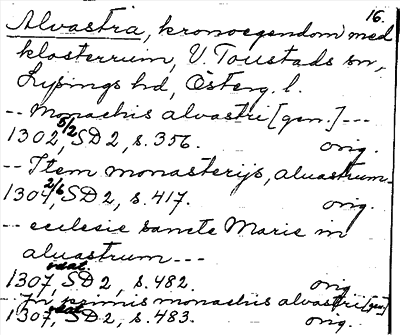 16.
Alvastra, kronoegendom med
klosterruin, V. Toustads sn,
Lysings hd, Österg. l.
-- Monachis alvastri [gen.] ---
1302 5/2, SD 2, s. 356. orig.
-- Item monasterijs, aluastrum--
1304 2/6, SD 2, s. 417. orig.
-- ecclesie sancte Marie in
aluastrum ---
1307 SD 2, s. 482. orig.
In primis monachis alvastri [gen]
1307 SD 2, s. 483. orig.